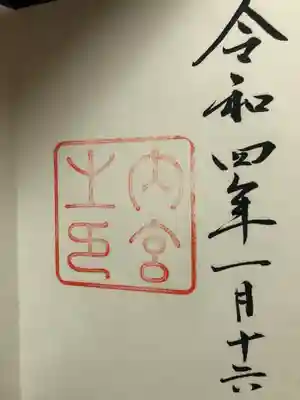 令和四年一月十六
内宮
之印